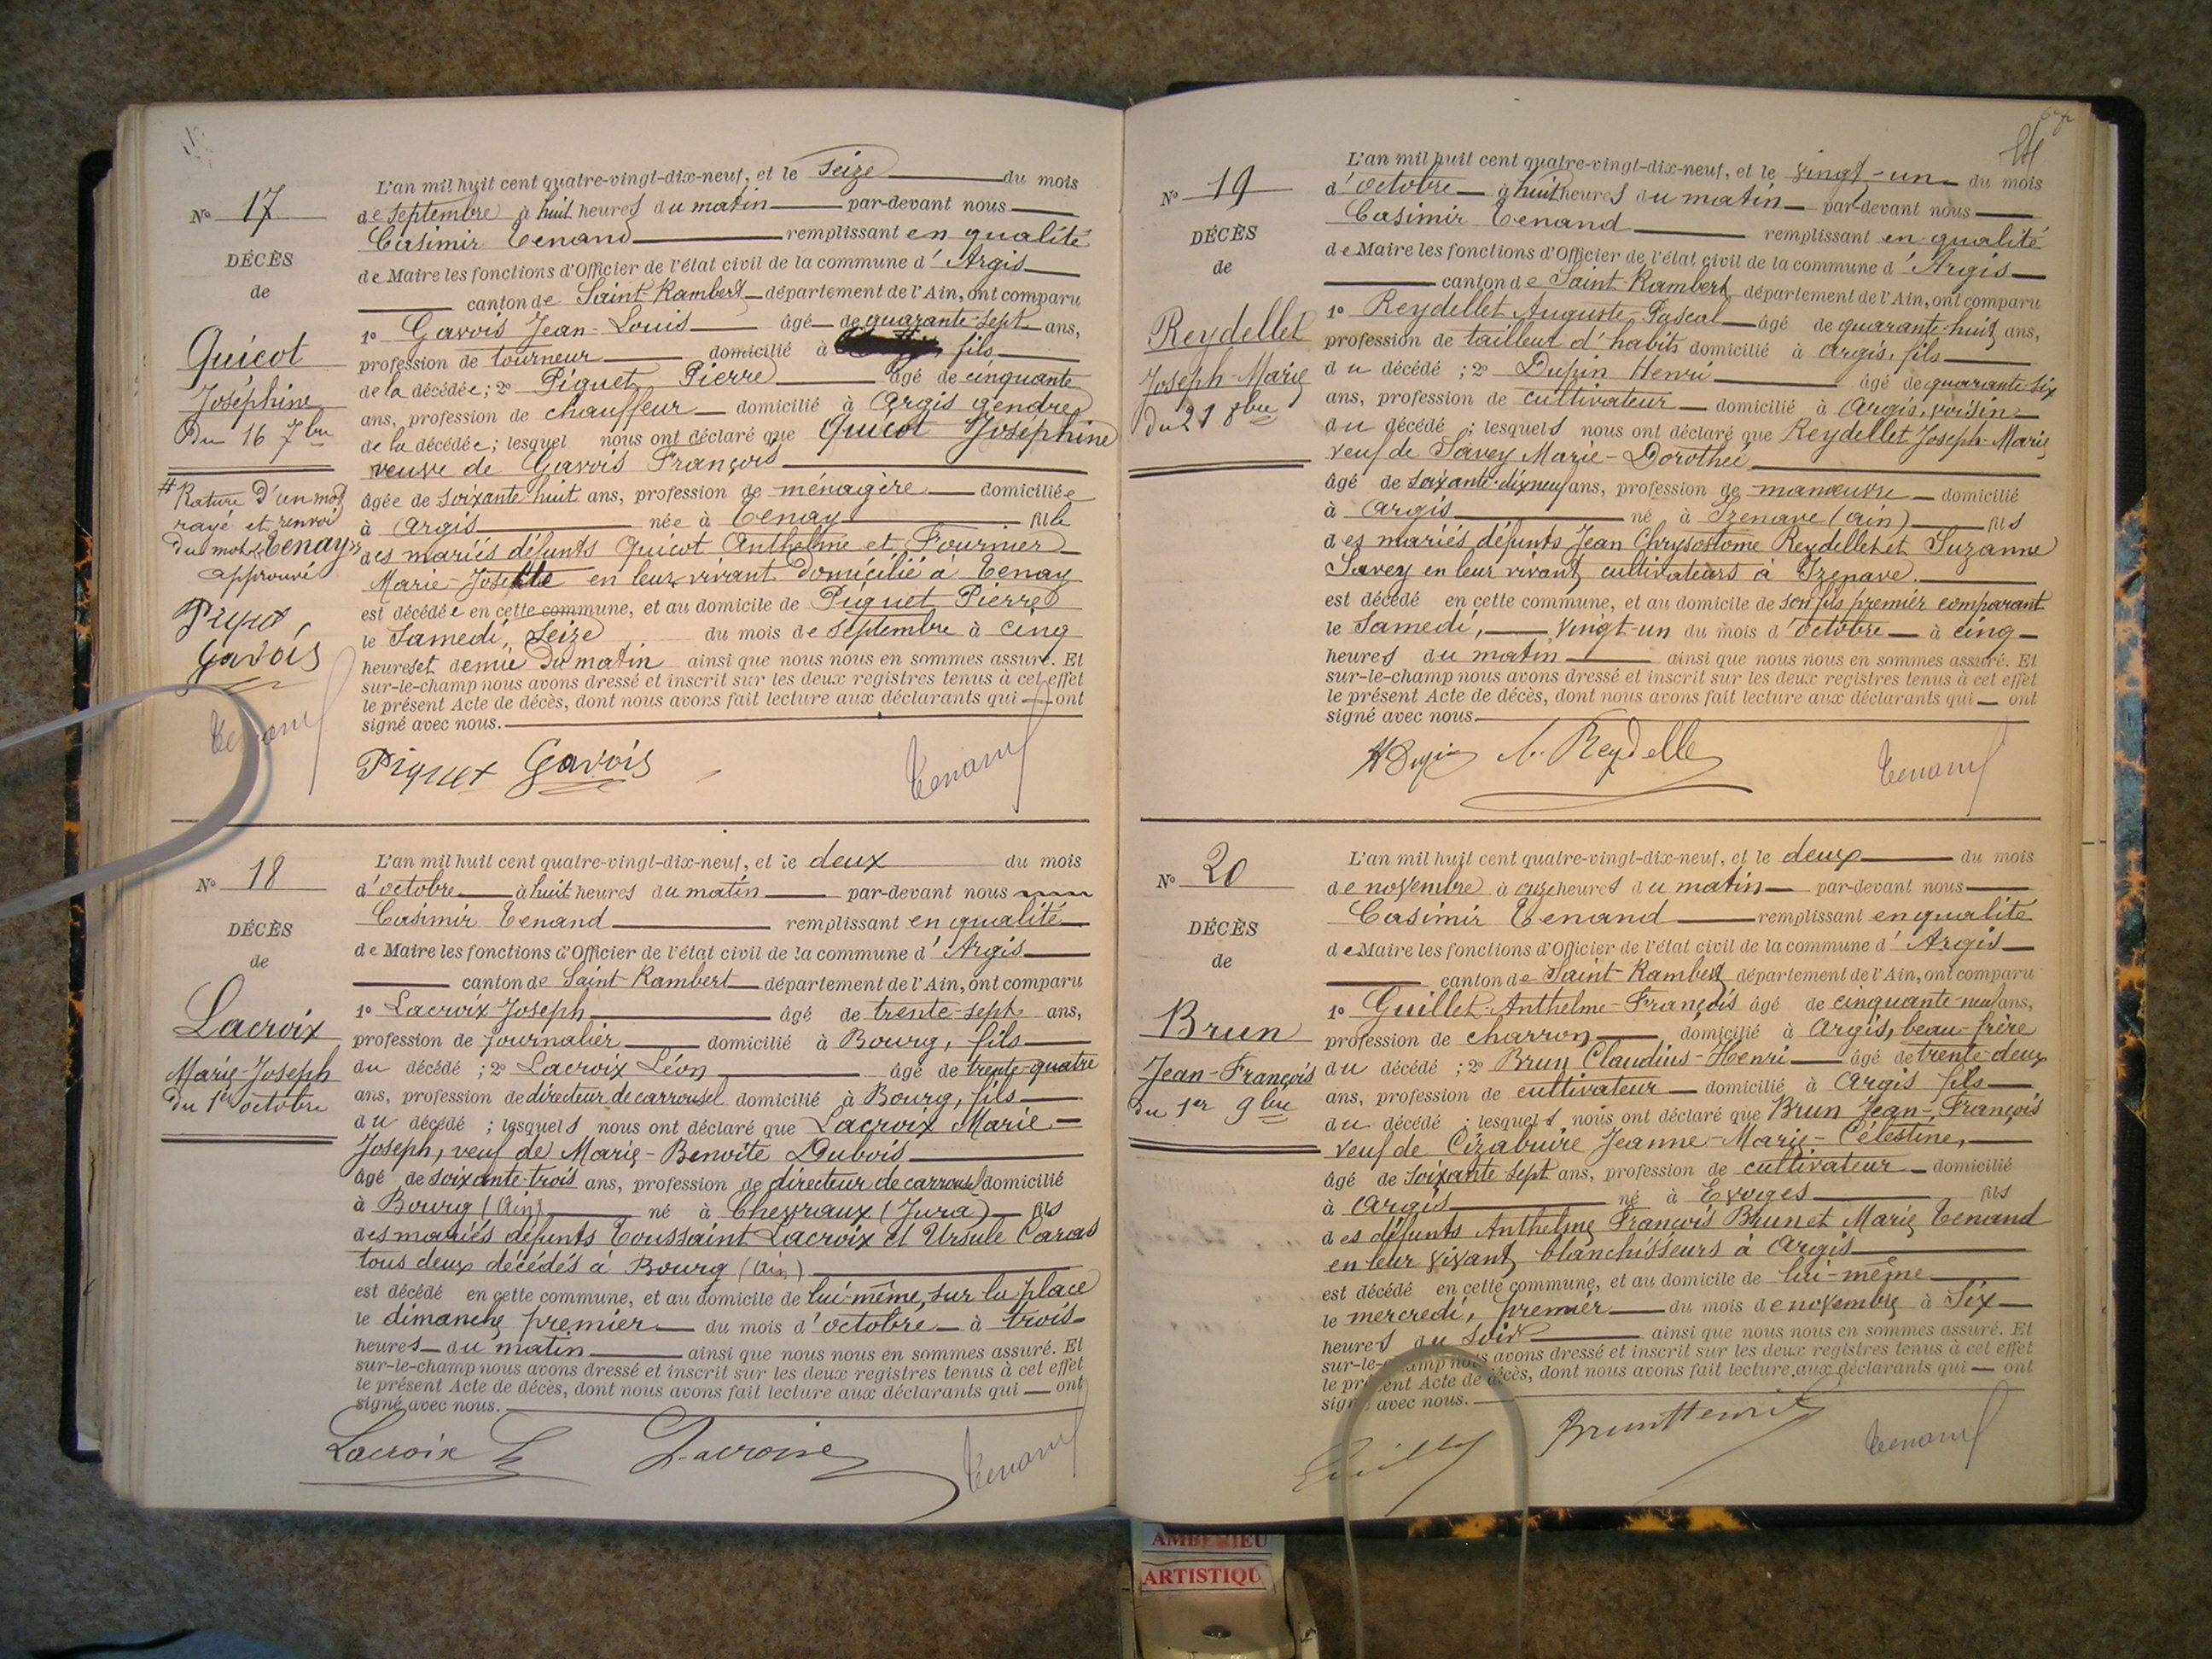 Nº 17
DÉCÈS
de
Quicot
Joséphine
Du 16 7bre
# Rature d'un mot
rayé et renvoi
du mot "Tenay"
approuvé
Piquet
Gavois
Tenand
L'an mil huit cent quatre-vingt-dix-neuf, et le seize du mois
de septembre à huit heures du matin par-devant nous
Casimir Tenand remplissant en qualité
de Maire les fonctions d'Officier de l'état civil de la commune d'Argis
canton de Saint-Rambert département de l'Ain, ont comparu
1º Gavois Jean-Louis âgé de quarante-sept ans,
profession de tourneur domicilié à fils
de la décédée; 2º Piguet Pierre âgé de cinquante
ans, profession de chauffeur domicilié à Argis gendre
de la décédée; lesquel nous ont déclaré que Quicot Joséphine
veuve de Gavois François
âgée de soixante huit ans, profession de ménagère domiciliée
à Argis née à Tenay fille
des mariés défunts Quicot Anthelme et Fournier
Marie-Josette en leur vivant domicilié à Tenay
est décédée en cette commune, et au domicile de Piguet Pierre
le Samedi, Seize du mois de septembre à cinq
heures et demie du matin ainsi que nous nous en sommes assuré. Et
sur-le-champ nous avons dressé et inscrit sur les deux registres tenus à cet effet
le présent Acte de décès, dont nous avons fait lecture aux déclarants qui ont
signé avec nous.
Piquet Gavois Tenand
Nº 18
DÉCÈS
de
Lacroix
Marie-Joseph
du 1er octobre
L'an mil huit cent quatre-vingt-dix-neuf, et le deux du mois
d'octobre à huit heures du matin par-devant nous
Casimir Tenand remplissant en qualité
de Maire les fonctions d'Officier de l'état civil de la commune d'Argis
canton de Saint-Rambert département de l'Ain, ont comparu
1º Lacroix Joseph âgé de trente-sept ans,
profession de journalier domicilié à Bourg, fils
du décédé ; 2º Lacroix Léon âgé de trente-quatre
ans, profession de directeur de carrousel domicilié à Bourg, fils
du décédé ; lesquels nous ont déclaré que Lacroix Marie-
Joseph, veuf de Marie-Benoîte Dubois
âgé de soixante-trois ans, profession de directeur de carrousel domicilié
à Bourg (Ain) né à Chevraux (Jura) fils
des mariés défunts Toussaint Lacroix et Ursule Caras
tous deux décédés à Bourg (Ain)
est décédé en cette commune, et au domicile de lui-même, sur la place
le dimanche premier du mois d'octobre à trois
heures du matin ainsi que nous nous en sommes assuré. Et
sur-le-champ nous avons dressé et inscrit sur les deux registres tenus à cet effet
le présent Acte de décès, dont nous avons fait lecture aux déclarants qui ont
signé avec nous.
Lacroix L Lacroix Tenand
Nº 19
DÉCÈS
de
Reydellet
Joseph-Marie
du 21 8bre
L'an mil huit cent quatre-vingt-dix-neuf, et le vingt-un du mois
d'octobre à huit heures du matin par-devant nous
Casimir Tenand remplissant en qualité
de Maire les fonctions d'Officier de l'état civil de la commune d'Argis
canton de Saint-Rambert département de l'Ain, ont comparu
1º Reydellet Auguste-Pascal âgé de quarante-huit ans,
profession de tailleur d'habits domicilié à Argis, fils
du décédé ; 2º Dupin Henri âgé de quarante-six
ans, profession de cultivateur domicilié à Argis, voisin
du décédé ; lesquels nous ont déclaré que Reydellet Joseph-Marie
veuf de Savey Marie-Dorothée
âgé de soixante-dix neuf ans, profession de manœuvre domicilié
à Argis né à Izenave (Ain) fils
des mariés défunts Jean Chrysostome Reydellet et Suzanne
Savey en leur vivant cultivateurs à Izenave.
est décédé en cette commune, et au domicile de son fils premier comparant
le Samedi, vingt-un du mois d'octobre à cinq
heures du matin ainsi que nous nous en sommes assuré. Et
sur-le-champ nous avons dressé et inscrit sur les deux registres tenus à cet effet
le présent Acte de décès, dont nous avons fait lecture aux déclarants qui ont
signé avec nous.
H Dupin A. Reydelle Tenand
Nº 20
DÉCÈS
de
Brun
Jean-François
du 1er 9bre
L'an mil huit cent quatre-vingt-dix-neuf, et le deux du mois
de novembre à onze heures du matin par-devant nous
Casimir Tenand remplissant en qualité
de Maire les fonctions d'Officier de l'état civil de la commune d'Argis
canton de Saint-Rambert département de l'Ain, ont comparu
1º Guillet Anthelme-François âgé de cinquante-neuf ans,
profession de charron domicilié à Argis, beau-frère
du décédé ; 2º Brun Claudius-Henri âgé de trente-deux
ans, profession de cultivateur domicilié à Argis fils
du décédé ; lesquels nous ont déclaré que Brun Jean-François
veuf de Cizabuire Jeanne-Marie-Célestine,
âgé de soixante sept ans, profession de cultivateur domicilié
à Argis né à Evoges fils
des défunts Anthelme François Brun et Marie Tenand
en leur vivant blanchisseurs à Argis
est décédé en cette commune, et au domicile de lui-même
le mercredi, premier du mois de novembre à Six
heures du soir ainsi que nous nous en sommes assuré. Et
sur-le-champ nous avons dressé et inscrit sur les deux registres tenus à cet effet
le présent Acte de décès, dont nous avons fait lecture aux déclarants qui ont
signé avec nous.
Brun Henri Tenand
AMBERIEU
ARTISTIQU